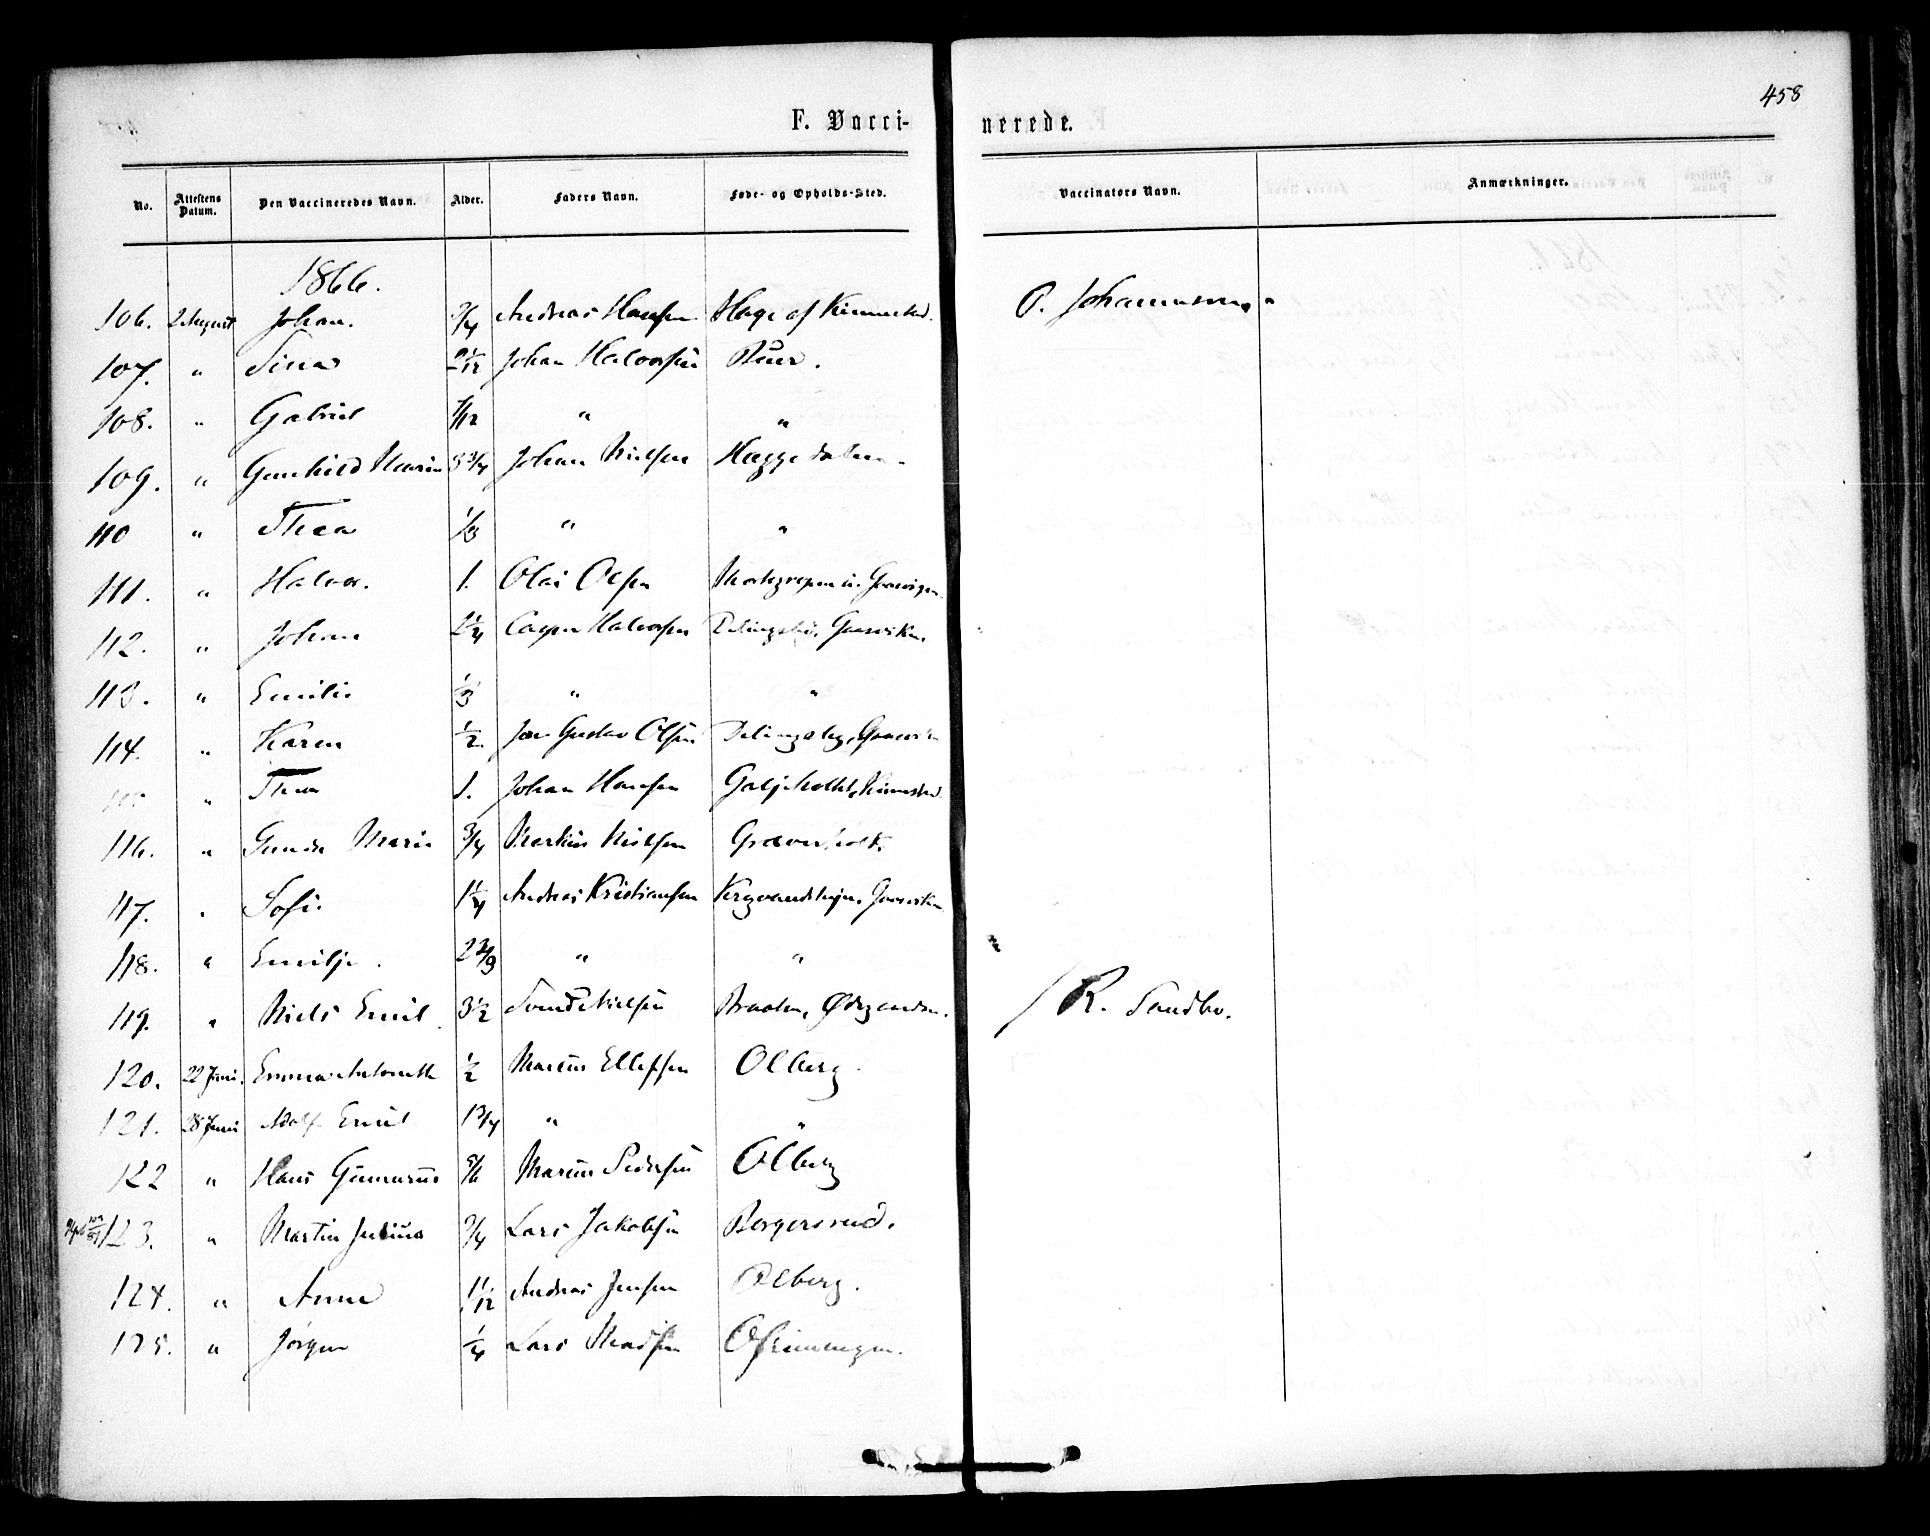 458
F. Vacci- nerede.
No. Attestens Datum. Den Vaccineredes Navn. Alder. Faders Navn. Føde- og Opholds-Sted. Vaccinators Navn. Anmærkninger.
1866.
106. 2 August Johan. 3/4 Andreas Hansen Hage af Kinnestad. P. Johannesen
107. " Tina 2 1/12 Johan Halvorsen Buer.
108. " Gabriel 1/12 " "
109. " Gunhild Marin 3 3/4 Johan Nielsen Haggedalen.
110 " Thea 1/3 " "
111. " Halvor. 1. Olai Olsen
112. " Johan 2 1/4 Casper Halvorsen Delingsbø, Gaasviken.
113. " Emilie 1/3 " "
114. " Karen 1/2. Jon Gustav Olsen
115 " Thea 1. Johan Hansen Galjeholtet, Kinnestad.
116. " Gunda Marie 3/4 Markus Nielsen Gravenholt.
117. " Sofie 1 1/4 Andreas Kristiansen
118. " Emilje. 2 "  "
119. " Niels Emil 3 1/2 Nielsen Braaten, R. Sandbo.
120. 22 Juni. Emma Antonette 1/2 Marcus Ellefsen Olberg.
121. 28 Juni Adolf Emil 1 3/4 " "
122 " Hans Gunnarius 5/6 Marcus Pedersen Olberg
123. " Martin Julius 3/4 Lars Jakobsen Borgersrud.
124. " Anne 1 1/12 Andreas Jensen Olberg.
125. " Jörgen 1/4 Lars Madsen